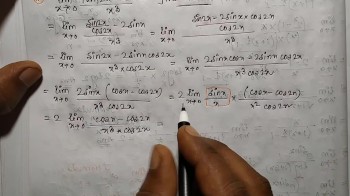 lim x→0 x³
= lim x→0 (sin2x/cos2x - 2sinx)/x³ = lim x→0 (sin2x - 2sinx × cos2x)/cos2x / x³
= lim x→0 (sin2x - 2sinx cos2x)/(x³ × cos2x) = lim x→0 (2sinx cosx - 2sinx cos2x)/(x³ cos2x)
= lim x→0 2sinx (cosx - cos2x)/(x³ cos2x) = 2 lim x→0 sinx/x × (cosx - cos2x)/(x² cos2x)
= 2 lim x→0 (cosx - cos2x)/(x² × cos2x) =